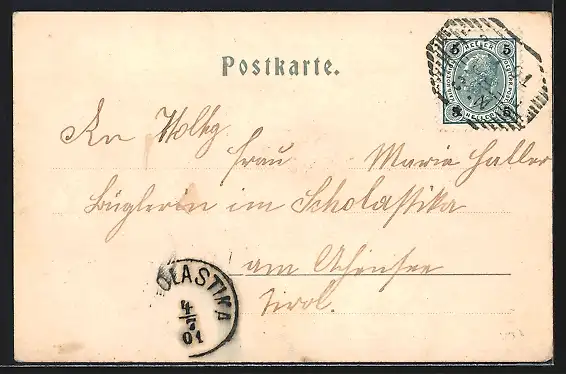 Postkarte.
5 HELLER 5
An Wollg
Frau Maria Haller
Büglerin im Scholastika
am Achensee
Tirol.
OLASTIKA
4/7
01